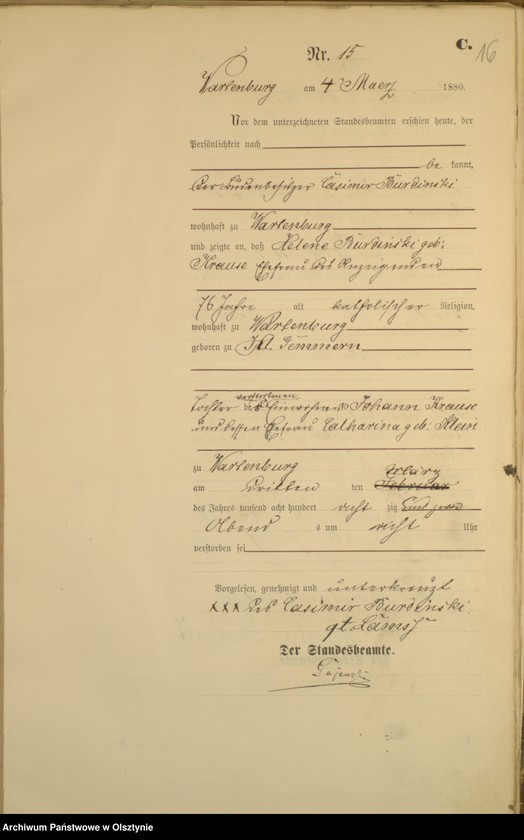 C. 16
Nr. 15
Wartenburg am 4 Maerz 1880.
Vor dem unterzeichneten Standesbeamten erschien heute, der
Persönlichkeit nach
be kannt,
der Budenbesitzer Casimir Burdinski
wohnhaft zu Wartenburg
und zeigte an, daß Helene Burdinski geb:
Krause Ehefrau des Anzeigenden
76 Jahre alt katholischer Religion,
wohnhaft zu Wartenburg
geboren zu Kl.
verstorbenen
Tochter des Einwohners Johann Krause
und dessen Ehefrau Catharina geb: Klein
zu Wartenburg
März
am dritten ten Februar
des Jahres tausend acht hundert acht zig
Abend s um acht Uhr
verstorben sei
Vorgelesen, genehmigt und unterkreuzt
XXX des Casimir Burdinski
Der Standesbeamte.
Archiwum Państwowe w Olsztynie